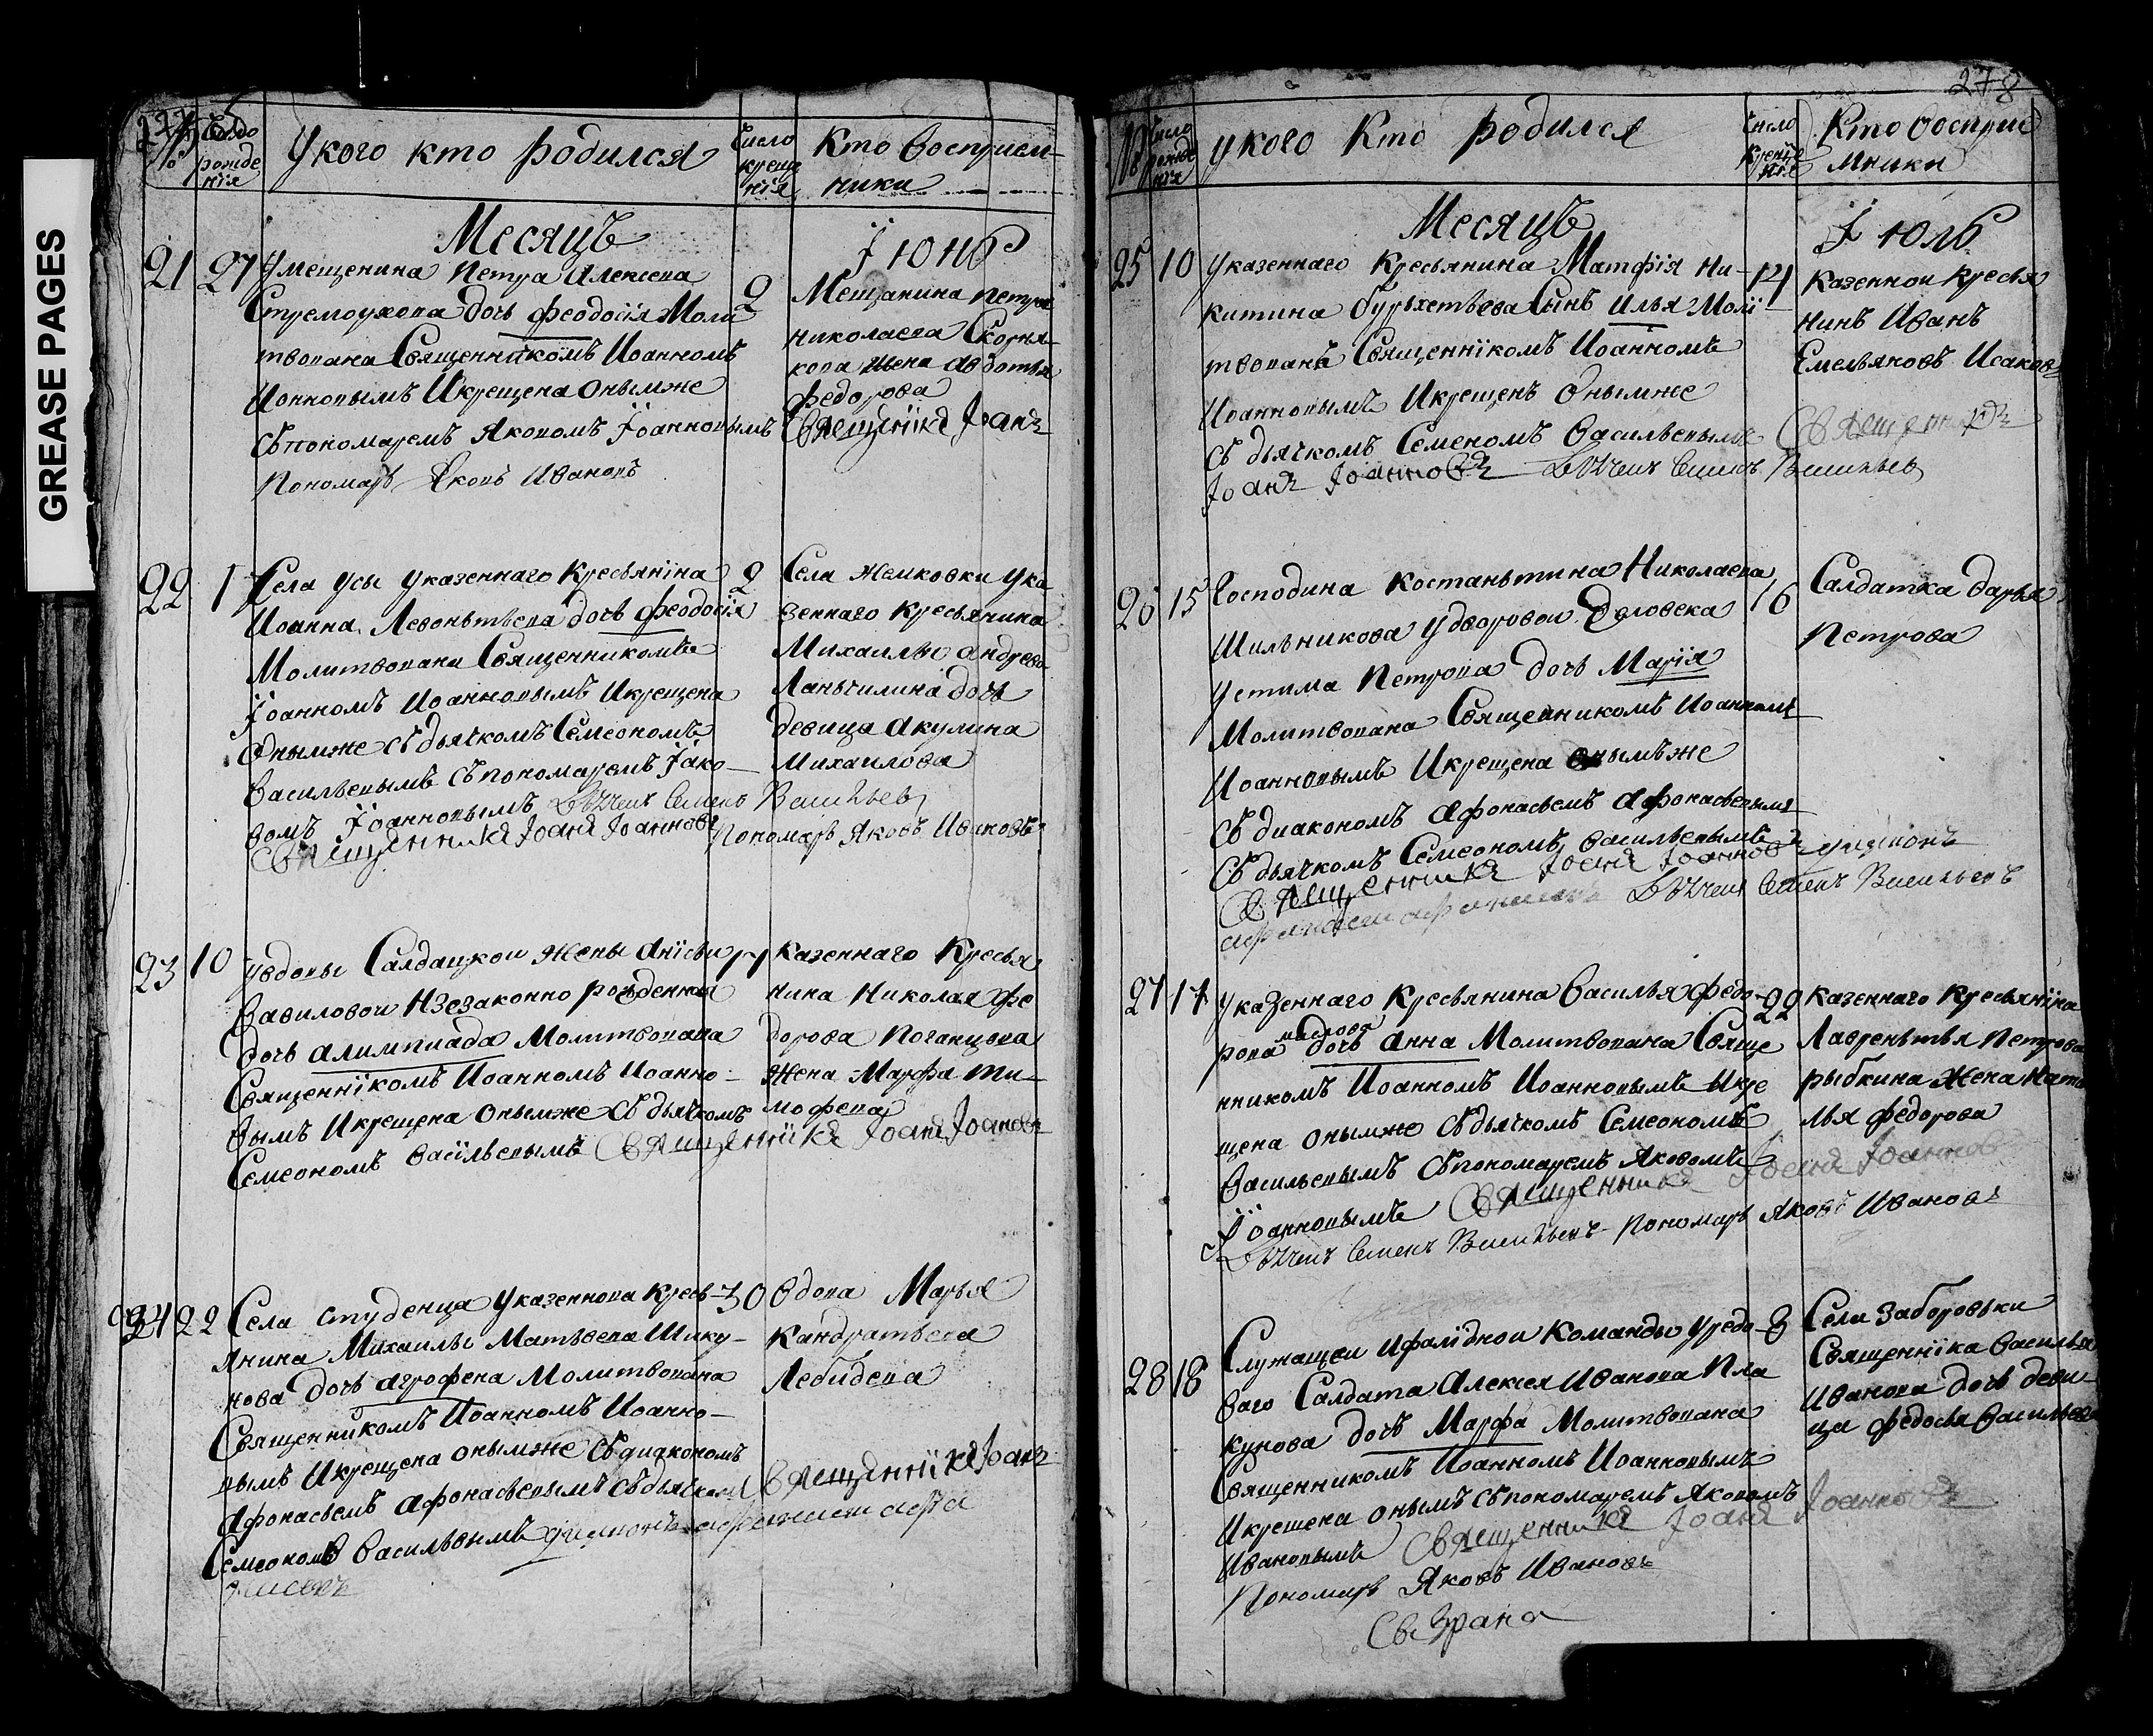 GREASE PAGES
278
№
Число рождения
У кого кто родился
Число крещения
Кто восприемники
Месяцъ Iюнь
21 27
Умещенина Петра Алексева
дочь Феодосiя Моли
твована Священникомъ Иоанномъ
Иоанновымъ И крещена онымже
Съ пономаремъ Яковомъ Iоанновымъ
Пономарь Яковъ Ивановъ
2
Мещанина Петра
Николаева Скорня
кова жена Авдотья
Федорова
Священникъ Iоанъ
22 1
Села Усы Указеннаго Кресьянiна
Иоанна Левоньтьева дочь Феодосiя
Молитвована Священникомъ
Iоанномъ Иоанновымъ И крещена
Онымже Съ дьячкомъ Семеономъ
Васильевымъ Съ пономаремъ Iако
вомъ Iоанновымъ Дьячекъ Семенъ Васильевъ
Священникъ Iоанъ Iоанновъ Пономарь Яковъ Ивановъ
2
Села Жемковки Ука
зеннаго Кресьянина
Михаилы Андрева
Ланьчилина дочь
Девица Акулина
Михаилова
23 10
Увдовы Салдацкой жены Анiсьи
Вавиловой Незаконно рожденная
дочь Алимпиада Молитвована
Священнiкомъ Иоанномъ Иоанно
вымъ И крещена Онымже Съ дьячкомъ
Семеономъ Васiльевымъ Священнiкъ Iоанъ Iоановъ
14
Казеннаго Кресья
нина Николая Фе
дорова Поганцова
Жена Марфа Ти
мофева
24 22
Села Студенца Указеннова Кресь
янина Михаилы Матьвева Шику
нова дочь Агрофена Молитвована
Священникомъ Иоанномъ Иоанно
вымъ И крещена онымже Съ диакономъ
Афонасьемъ Афонасьевымъ Съ дьячкомъ
Семеономъ Васильвымъ
30
Вдова Марья
Кандратьева
Лебидева
Священнiкъ Iоанъ
№
Число рождения
У кого Кто родился
Число крещенiе
Кто восприе
мники
Месяцъ Iюль
25 10
Указеннаго Кресьянина Матфiя Ни
китина Сынъ Илья Молi
твованъ Священнiкомъ Иоанномъ
Иоанновымъ И крещенъ Онымже
Съ дьячкомъ Семеномъ Васильевымъ Священникъ
Iоанъ Iоанновъ Дьячекъ Семенъ Васильевъ
14
Казенной Кресья
нинъ Иванъ
Емельяновъ Исаковъ
26 15
Господина Костаньтина Николаева
Шильникова Удворовой Человека
Устима Петрова дочь Марiя
Молитвована Священникомъ Иоанномъ
Иоанновымъ И крещена Онымъже
Съ диакономъ Афонасьемъ Афонасьевымъ
Съ дьячкомъ Семеономъ Васильевымъ
Священникъ Iоанъ Iоанновъ
Дьячекъ Семенъ Васильевъ
16
Салдатка Дарья
Петрова
27 17
Указеннаго Кресьянина Василья Федо
рова дочь Анна Молитвована Свяще
нникомъ Иоанномъ Иоанновымъ И кре
щена онымже Съ дьячкомъ Семеономъ
Васильевымъ Съ пономаремъ Яковомъ
Iоанновымъ Священникъ Iоанъ Iоанновъ
Дьячекъ Семенъ Васильевъ Пономарь Яковъ Ивановъ
22
Казеннаго Кресьянiна
Лавреньтья Петрова
Рыбкина Жена Ната
лья Федорова
28 18
Служащей Команды Уредо
ваго Салдата Алексея Иванова Пла
кунова дочь Марфа Молитвована
Священникомъ Иоанномъ Иоанновымъ
И крещена онымъ Съ пономаремъ Яковомъ
Ивановымъ Священникъ Iоанъ Iоанновъ
Пономарь Яковъ Ивановъ
Сызрана
Села Заборовьки
Священнiка Василья
Иванова дочь деви
ца Федосья Васильева